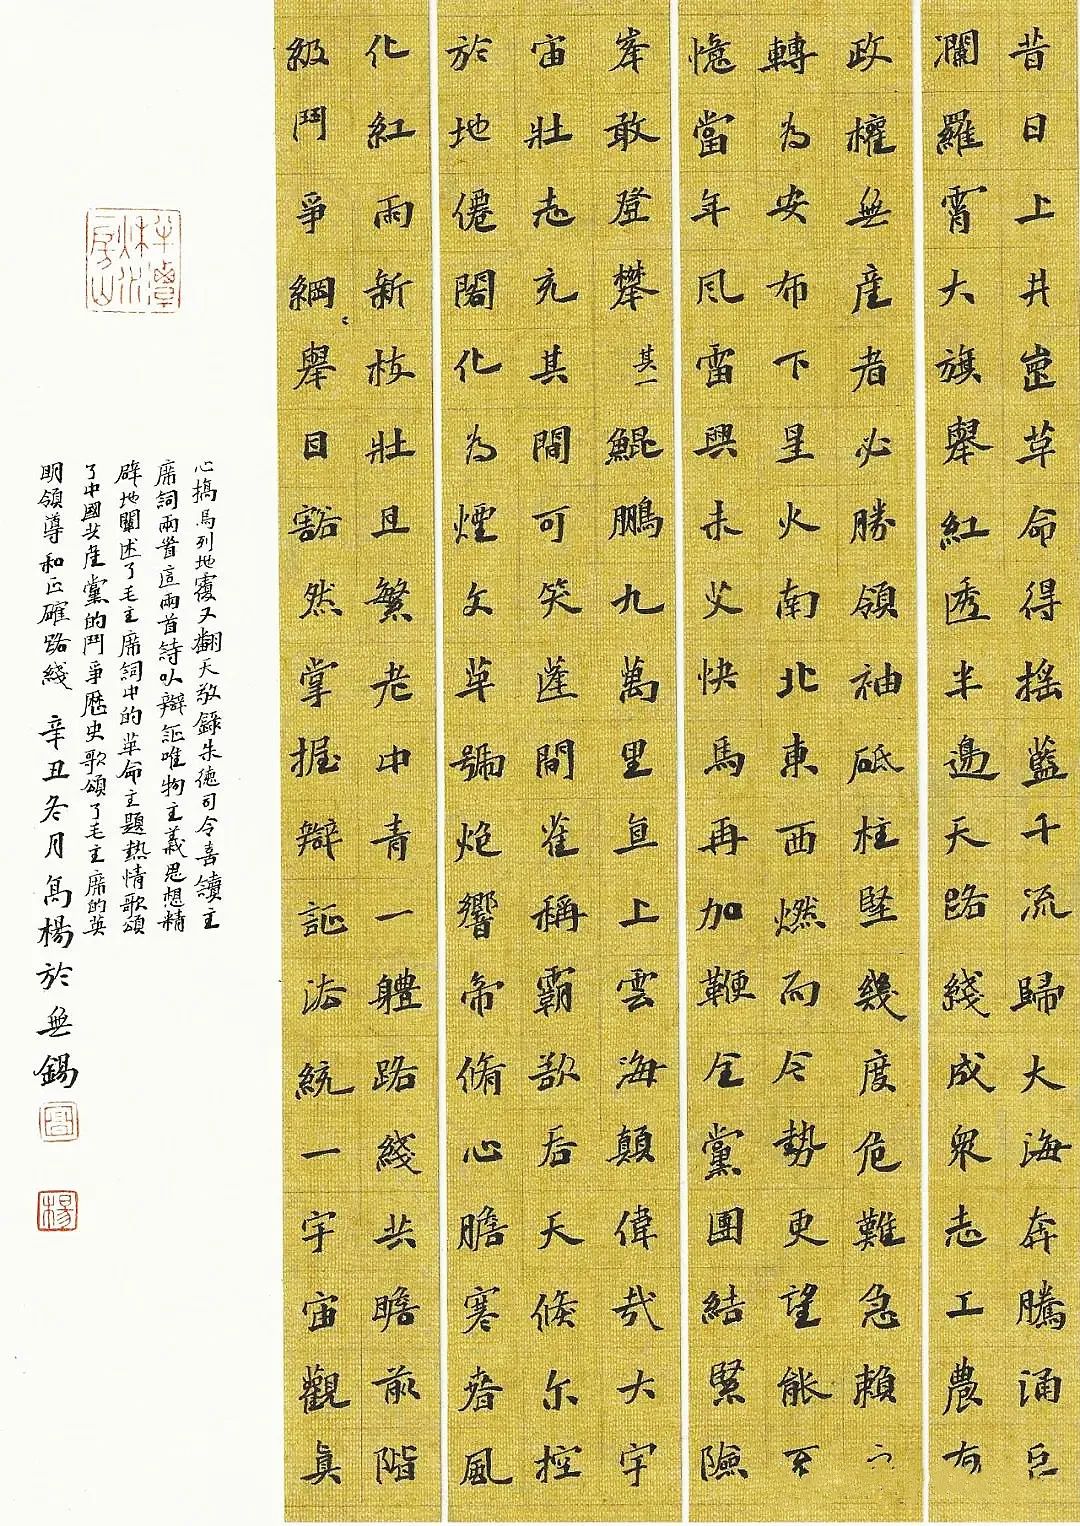 昔日上井崗革命得搖藍千流歸大海奔騰涌巨
瀾羅霄大旗舉紅透半邊天路綫成眾志工農有
政權無產者必勝領袖砥柱堅幾度危難急賴
轉為安布下星火南北東西燃而今勢更望能不
憶當年風雷興未艾快馬再加鞭全黨團結緊險
峯敢登攀 其一 鯤鵬九萬里直上雲海顛偉哉大宇
宙壯志充其間可笑蓬間雀稱霸欲后天倏尔控
於地僊閣化為煙文革號炮響帝脩心膽寒春風
化紅雨新枝壯且繁老中青一體路綫共瞻前階
級鬥爭綱舉目豁然掌握辯証法統一宇宙觀真
心搞馬列地覆又翻天敬錄朱德司令喜讀主
席詞兩首這兩首詩以辯証唯物主義思想精
辟地闡述了毛主席詞中的革命主題熱情歌頌
了中國共產黨的鬥爭歷史歌頌了毛主席的英
明領導和正確路綫 辛丑冬月高楊於無錫
高
楊
半潭秋水一房山